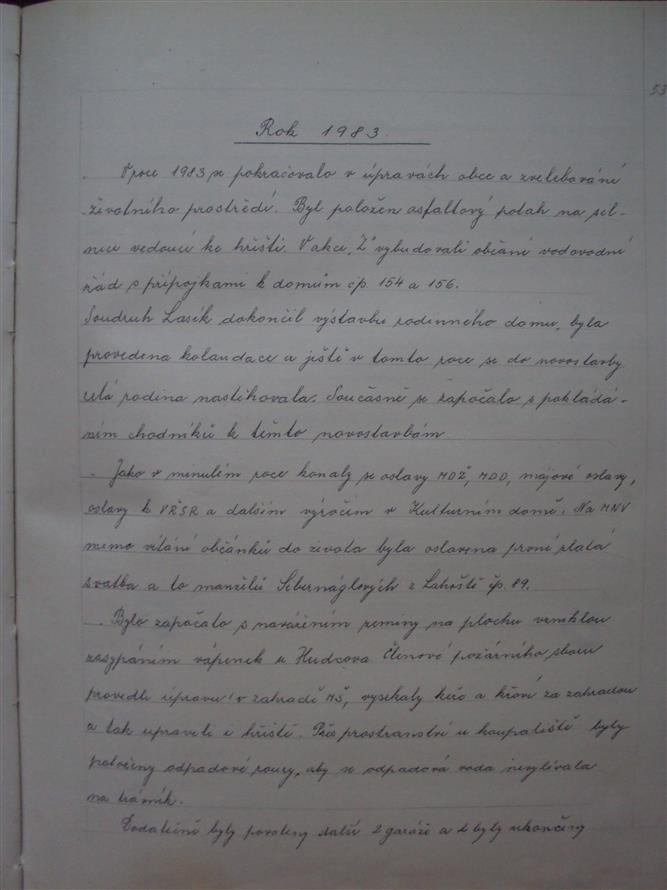 53
Rok 1983.
V roce 1983 se pokračovalo v úpravách obce a zvelebování
životního prostředí. Byl položen asfaltový potah na sil-
nici vedoucí ke hřišti. V akci „Z" vybudovali občané vodovodní
řád s přípojkami k domům čp. 154 a 156.
Soudruh Lasík dokončil výstavbu rodinného domu, byla
provedena kolaudace a ještě v tomto roce se do novostavby
celá rodina nastěhovala. Současně se započalo s pokládá-
ním chodníků k těmto novostavbám.
Jako v minulém roce konaly se oslavy MDŽ, MDD, májové oslavy,
oslavy k VŘSR a dalším výročím v Kulturním domě. Na MNV
mimo vítání občánků do života byla oslavena první zlatá
svatba a to manželů Sibernáglových z Lahoště čp. 89.
Bylo započato s navážením zeminy na plochu vzniklou
zasypáním vápenek u Hudcova. Členové požárního sboru
provedli úpravu v zahradě MŠ, vysekaly keře a křoví za zahradou
a tak upravili i hřiště. Přes prostranství u koupaliště byly
položeny odpadové roury, aby se odpadová voda nevylívala
na trávník.
Dodatečně byly povoleny další 2 garáže a 2 byly ukončeny